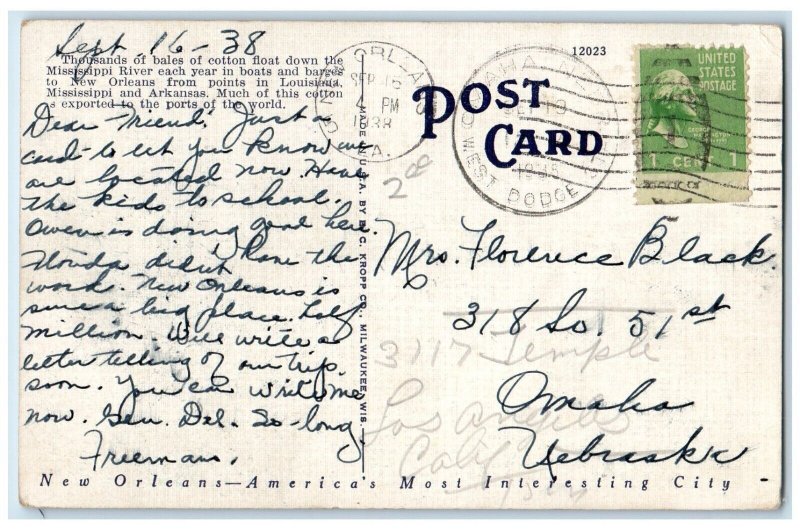 Sept. 16-38
Thousands of bales of cotton float down the
Mississippi River each year in boats and barges
to New Orleans from points in Louisiana,
Mississippi and Arkansas. Much of this cotton
is exported to the ports of the world.
Dear Friend: Just a
card to let you know we
are located now. Have
the kids to school.
Owen is doing good here.
Florida didn't have the
work. New Orleans is
sure a big place. half
million. Will write a
letter telling of our trip
soon. You can write me
now. Gen. Del. So-long
Freemans.
MADE IN U.S.A. BY E. C. KROPP CO., MILWAUKEE, WIS.
NEW ORLEANS
SEP 16
4 PM
1938
LA.
12023
POST
CARD
OMAHA, NEBR.
WEST DODGE
UNITED
STATES
POSTAGE
1 CENT 1
200
Mrs. Florence Black.
318 So. 51st
3117 Temple
Omaha
Los Angeles
Nebraska
Calif
New Orleans—America's Most Interesting City